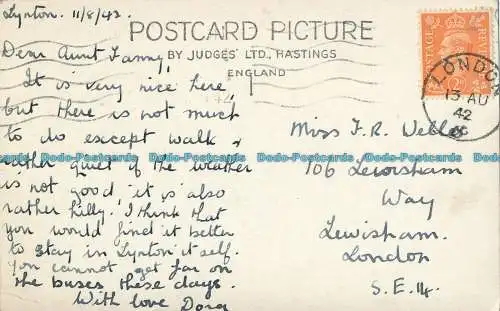 Lynton. 11/8/42.
POSTCARD PICTURE
BY JUDGES' LTD., HASTINGS
ENGLAND
Dear Aunt Fanny,
It is very nice here,
but there is not much
to do except walk &
rather quiet if the weather
is not good, it is also
rather hilly. I think that
you would find it better
to stay in Lynton it self.
You cannot get far on
the buses these days.
With love Dora
POSTAGE
REVENUE
LONDON
13 AU
42
Miss F. R. Weller
106 Lewisham
Way
Lewisham.
London
S.E.14.
Dodo-Postcards Dodo-Postcards Dodo-Postcards Dodo-Postcards Dodo-Postcards